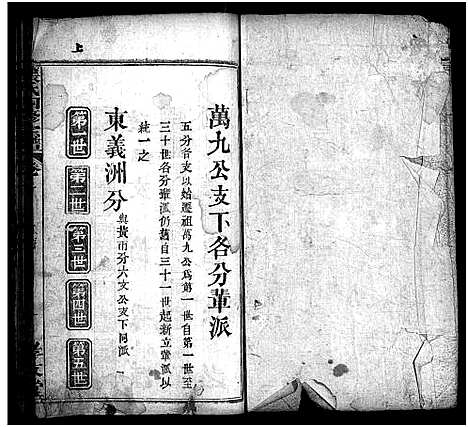 上
萬九公支下各分輩派
五分各支以始遷祖萬九公爲第一世至
三十世各分輩派仍舊自三十一世起新立輩派以
統一之
東義洲分 與黄市分六支公支下同派
第一世
第二世
第三世
第四世
第五世